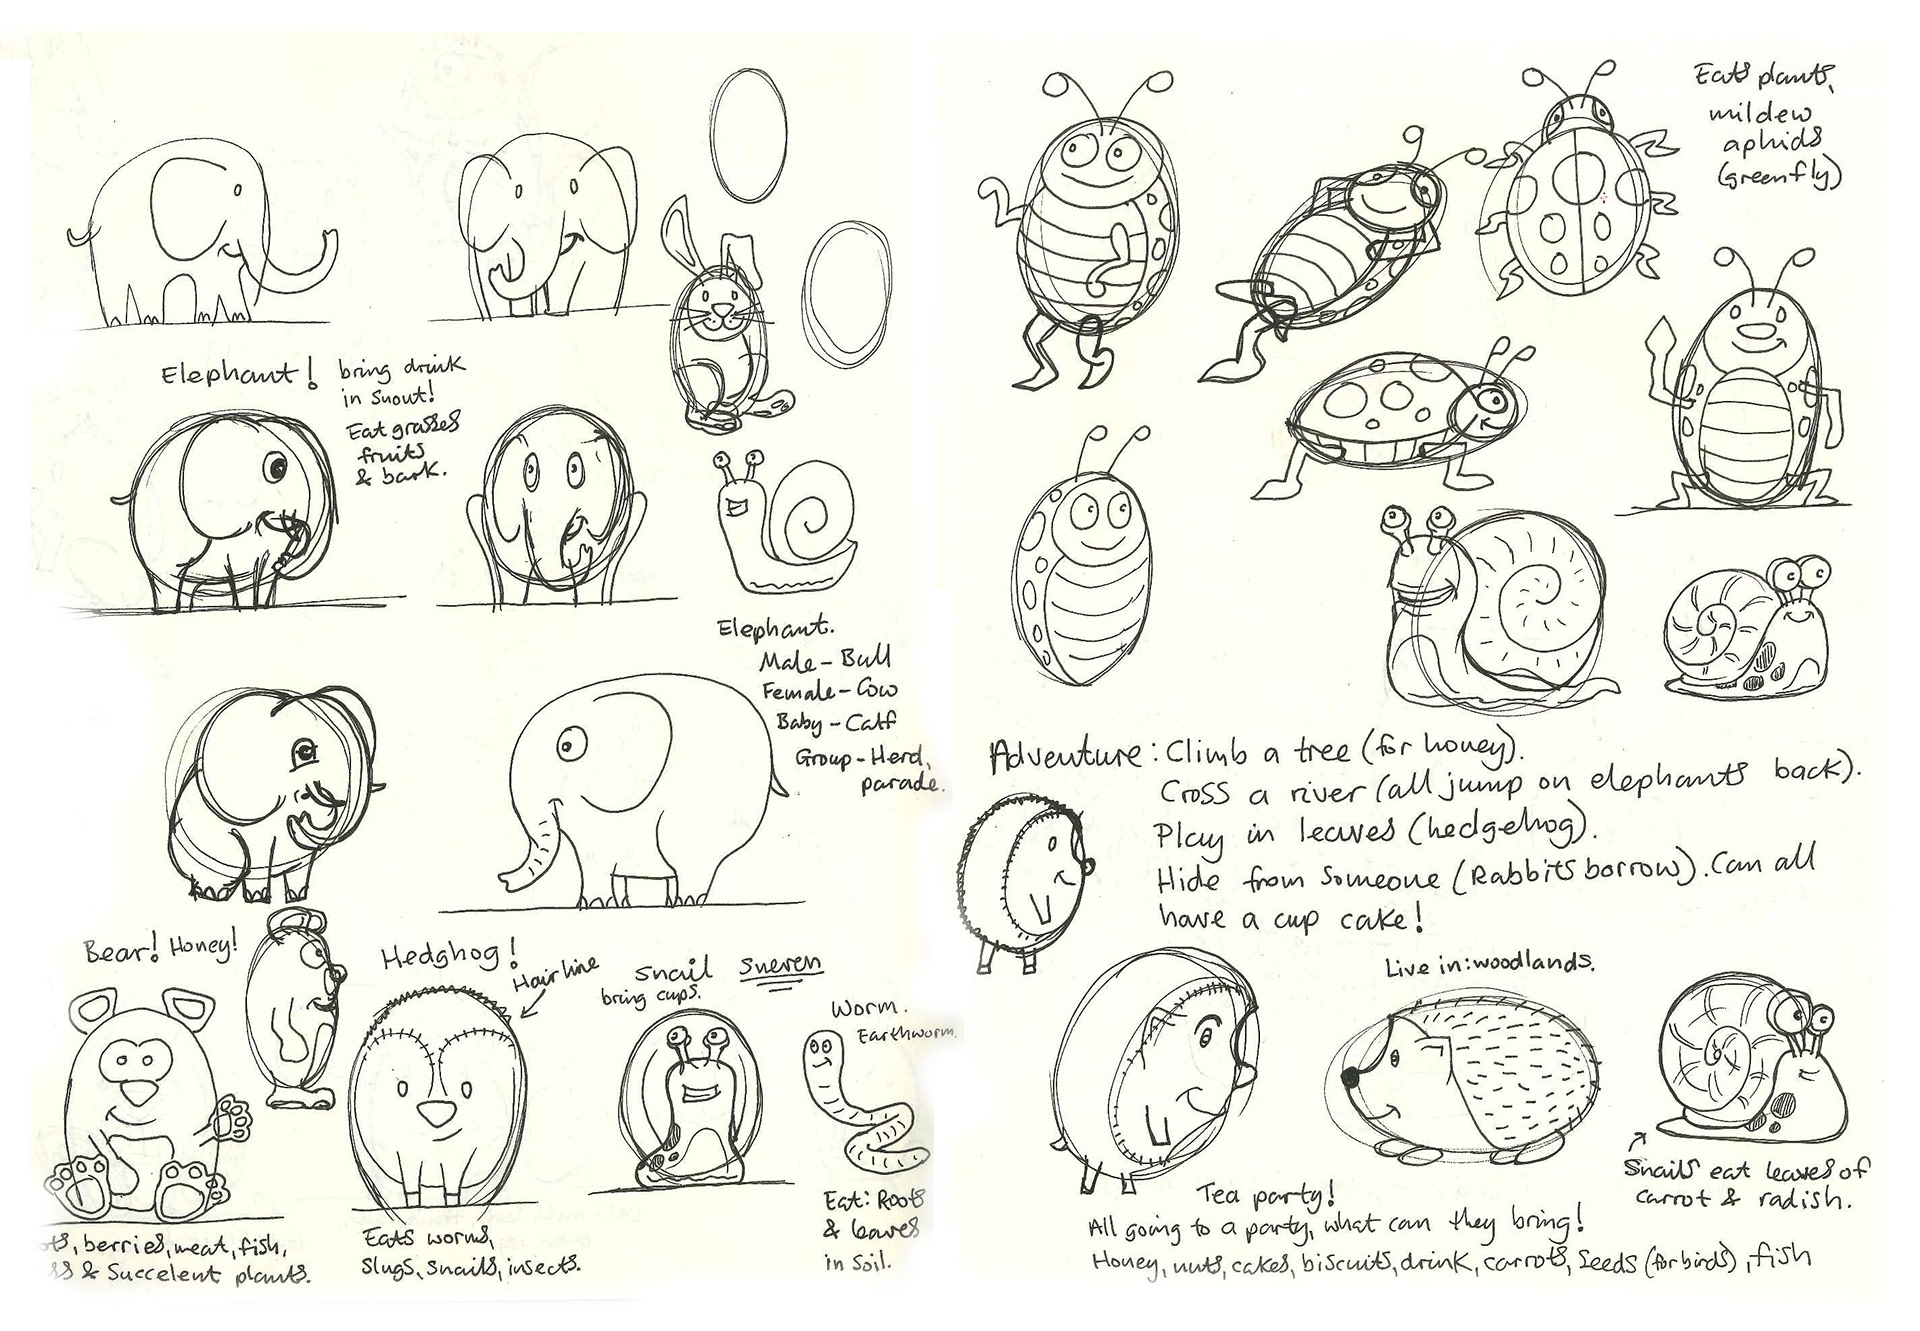 Elephant!
bring drink
in Snout!
Eat grasses
fruits
& bark.
Elephant.
Male - Bull
Female - Cow
Baby - Calf
Group - Herd,
parade.
Bear! Honey!
berries, meat, fish,
& Succelent plants.
Hedghog!
Hair line
Eats worms,
Slugs, snails, insects.
Snail
bring cups.
Worm.
Earthworm.
Eat: Roots
& leaves
in Soil.
Eats plants,
mildew
aphids
(greenfly)
Adventure: Climb a tree (for honey).
Cross a river (all jump on elephants back).
Play in leaves (hedgehog).
Hide from Someone (Rabbits borrow). Can all
have a cup cake!
Live in: woodlands.
Snails eat leaves of
carrot & radish.
Tea party!
All going to a party, what can they bring!
Honey, nuts, cakes, biscuits, drink, carrots, Seeds (for birds), fish